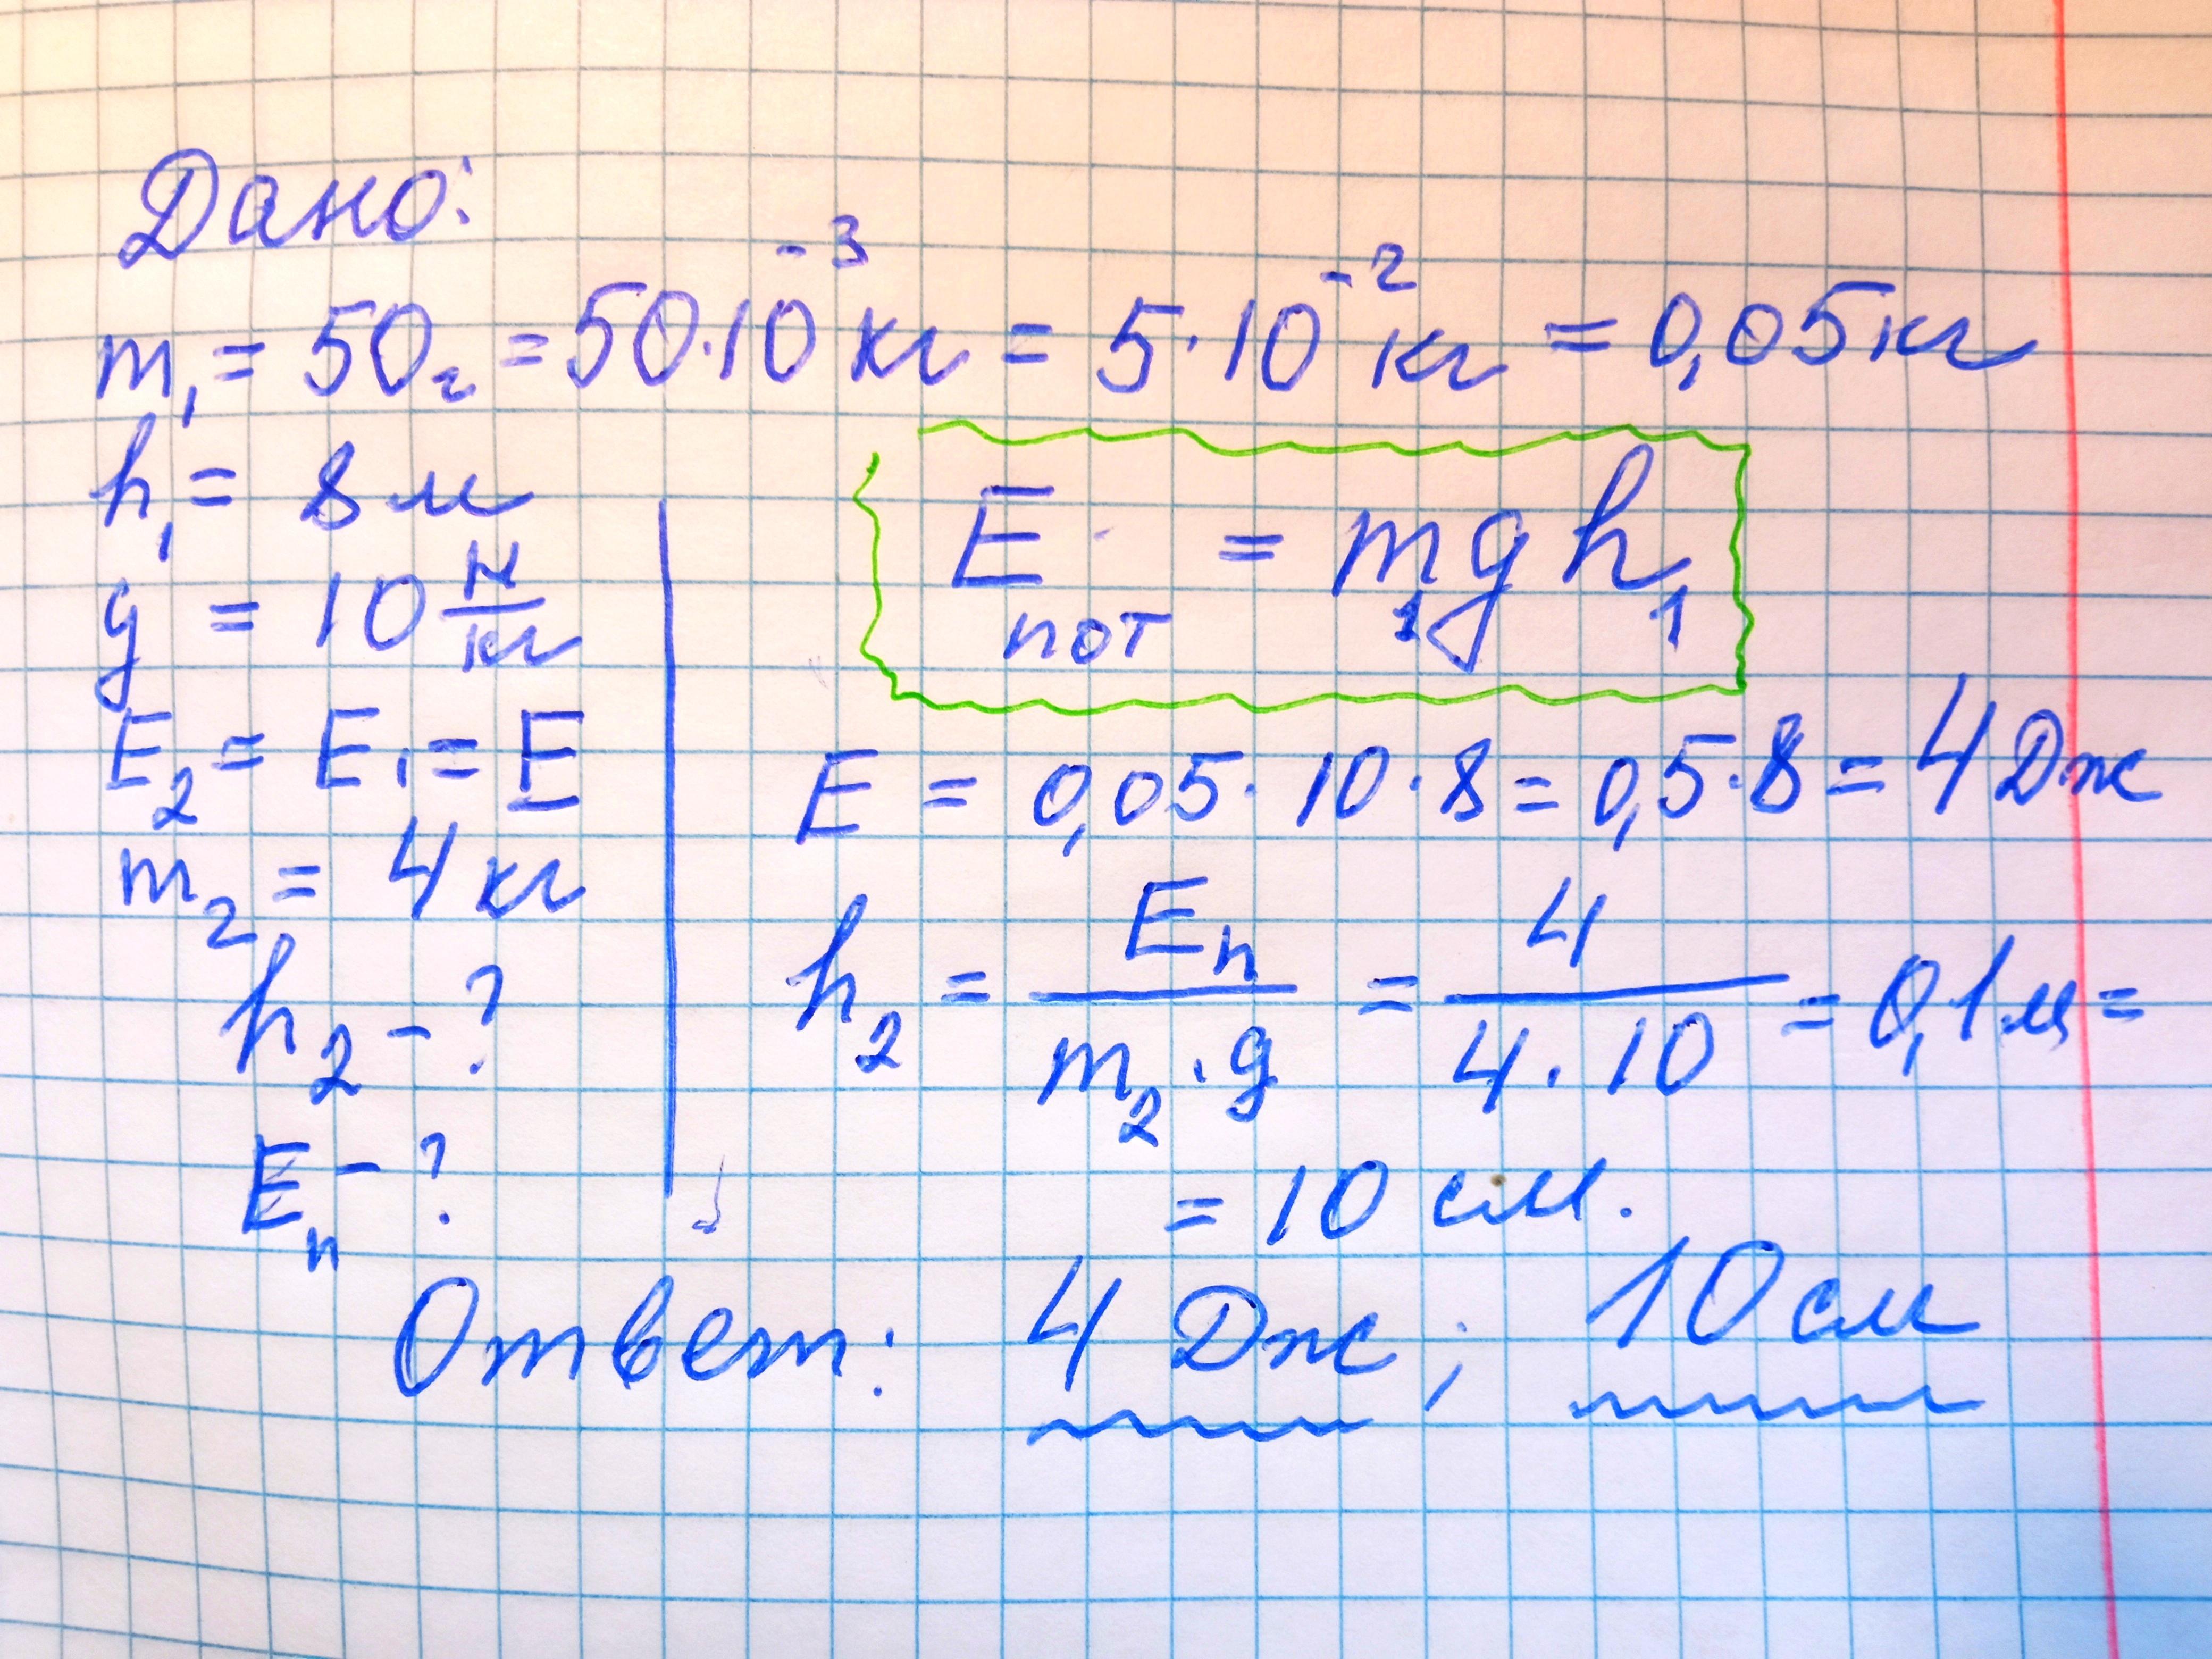 Дано:
m₁ = 50г = 50·10⁻³ кг = 5·10⁻² кг = 0,05 кг
h₁ = 8 м
g = 10 Н/кг
E₂ = E₁ = E
m₂ = 4 кг
h₂ - ?
Eп - ?
Eпот = m₁gh₁
E = 0,05 · 10 · 8 = 0,5 · 8 = 4 Дж
h₂ = Eп / (m₂ · g) = 4 / (4 · 10) = 0,1 м =
= 10 см.
Ответ: 4 Дж; 10 см